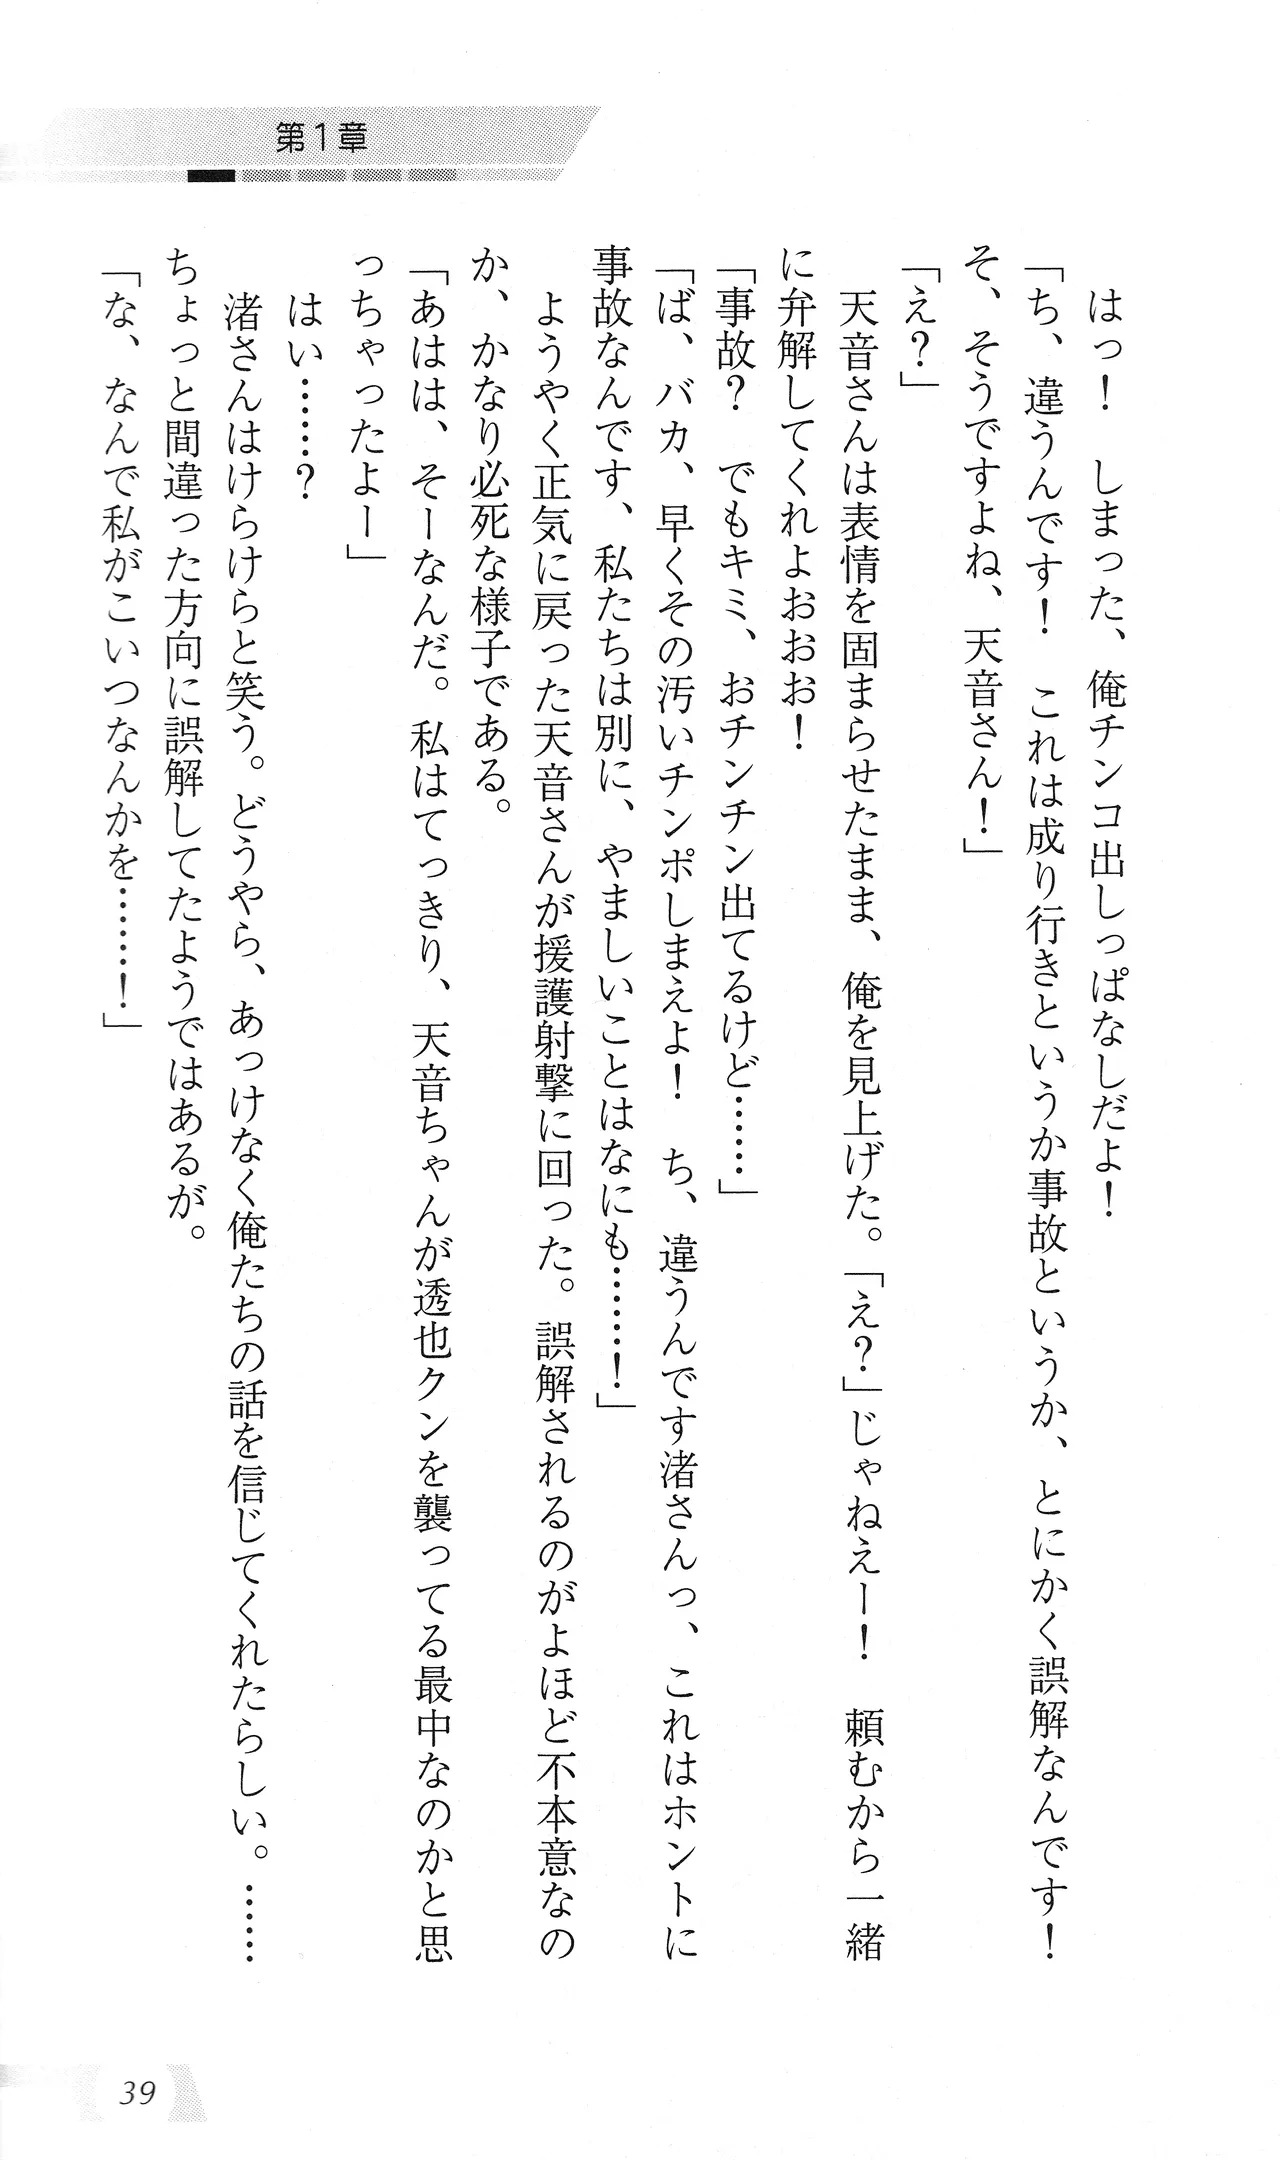 第1章
はっ！　しまった、俺チンコ出しっぱなしだよ！
「ち、違うんです！　これは成り行きというか事故というか、とにかく誤解なんです！
そ、そうですよね、天音さん！」
「え？」
天音さんは表情を固まらせたまま、俺を見上げた。「え？」じゃねえー！　頼むから一緒
に弁解してくれよおおお！
「事故？　でもキミ、おチンチン出てるけど……」
「ば、バカ、早くその汚いチンポしまえよ！　ち、違うんです渚さんっ、これはホントに
事故なんです、私たちは別に、やましいことはなにも……！」
ようやく正気に戻った天音さんが援護射撃に回った。誤解されるのがよほど不本意なの
か、かなり必死な様子である。
「あはは、そーなんだ。私はてっきり、天音ちゃんが透也クンを襲ってる最中なのかと思
っちゃったよー」
はい……？
渚さんはけらけらと笑う。どうやら、あっけなく俺たちの話を信じてくれたらしい。……
ちょっと間違った方向に誤解してたようではあるが。
「な、なんで私がこいつなんかを……！」
39